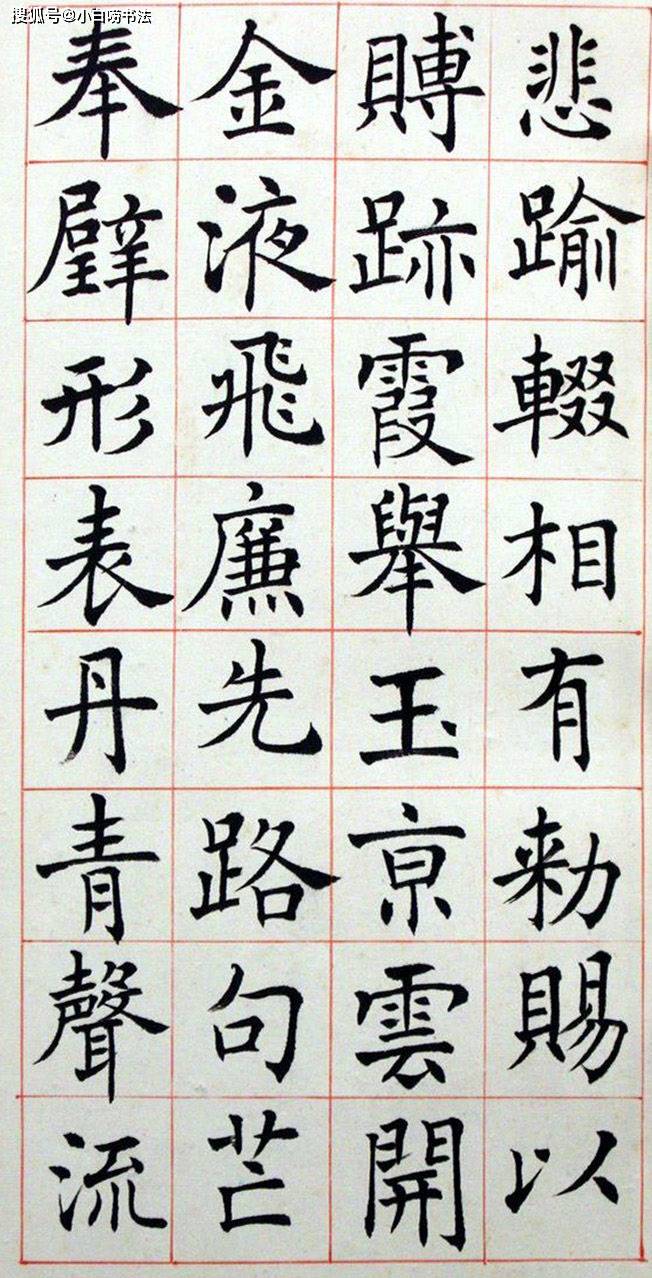 搜狐号@小白唠书法
悲踰輟相有勑賜以
賻跡霞舉玉京雲開
金液飛廉先路句芒
奉璧形表丹青聲流